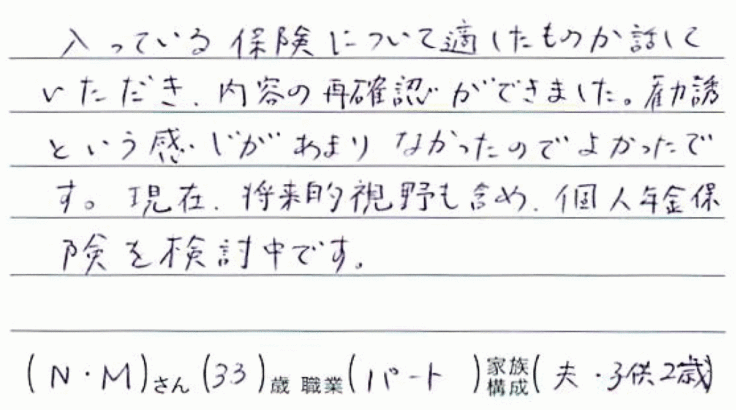 入っている保険について適したものか話して
いただき、内容の再確認ができました。勧誘
という感じがあまりなかったのでよかったで
す。現在、将来的視野も含め、個人年金保
険を検討中です。
(N・M)さん(33)歳 職業(パート)家族構成(夫・子供2歳)